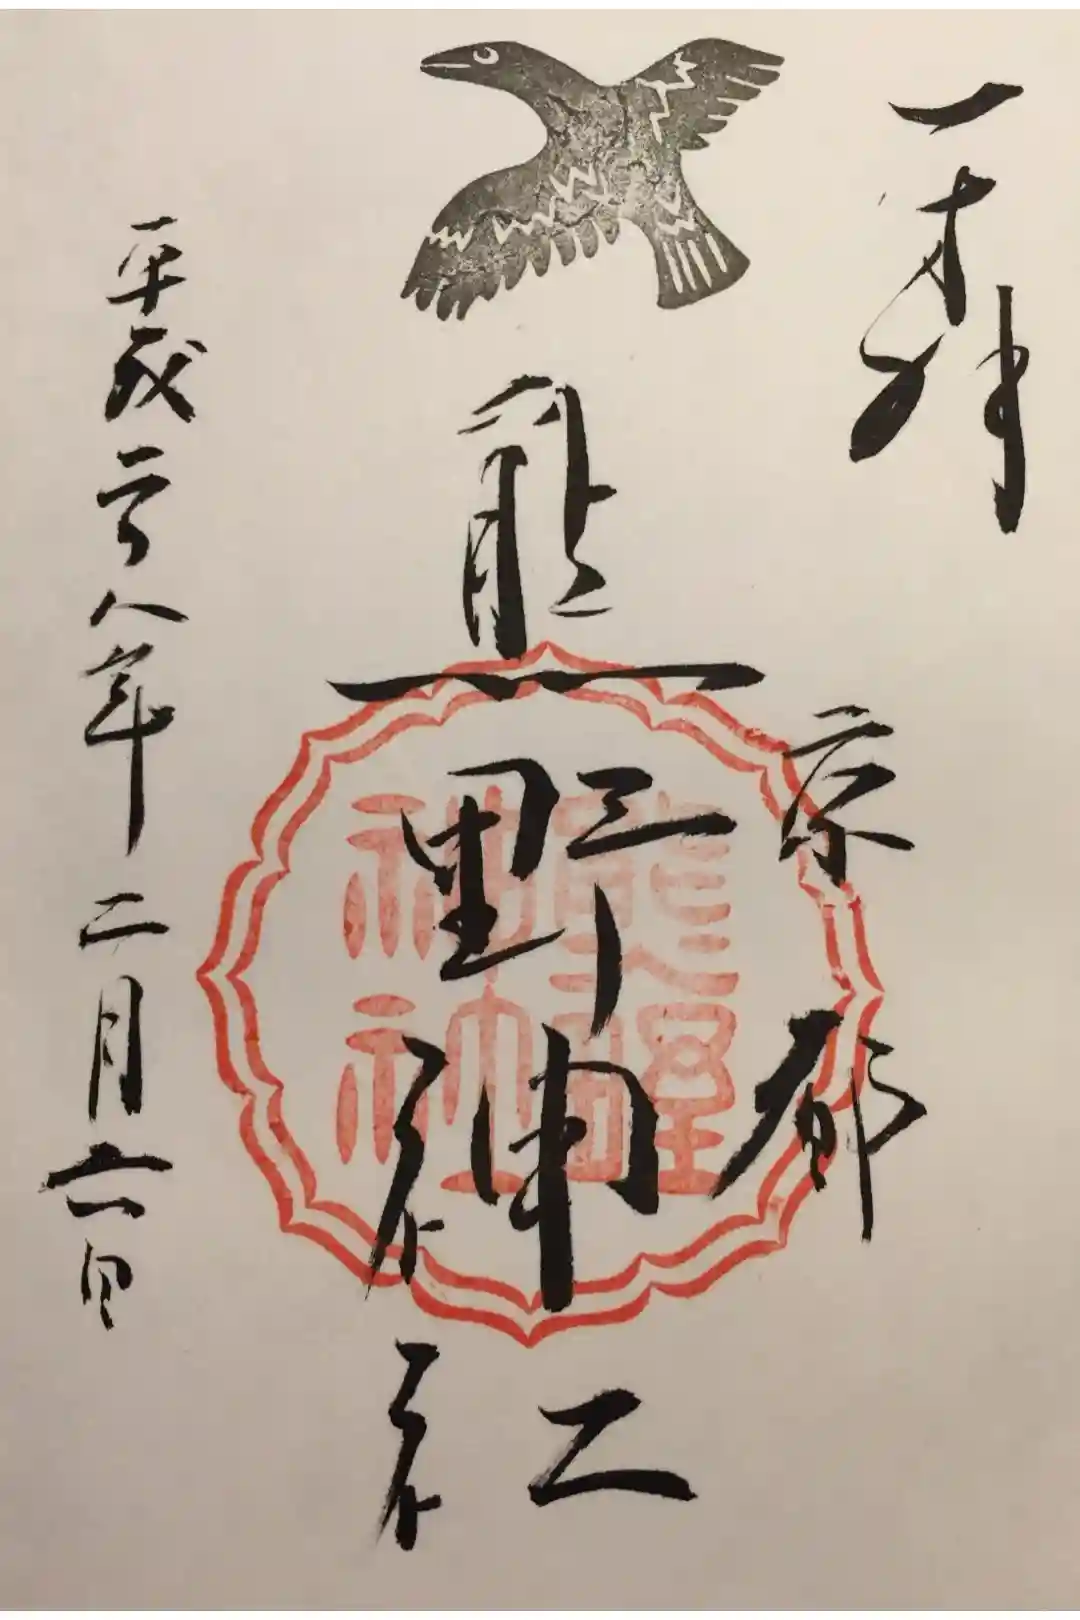 奉拝
京都
熊野神社
平成二十八年二月六日
熊野
神社